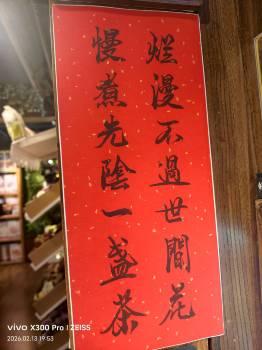 烂漫不過世間花
慢煮光陰一盏茶
vivo X300 Pro | ZEISS
2026.02.13 19:53